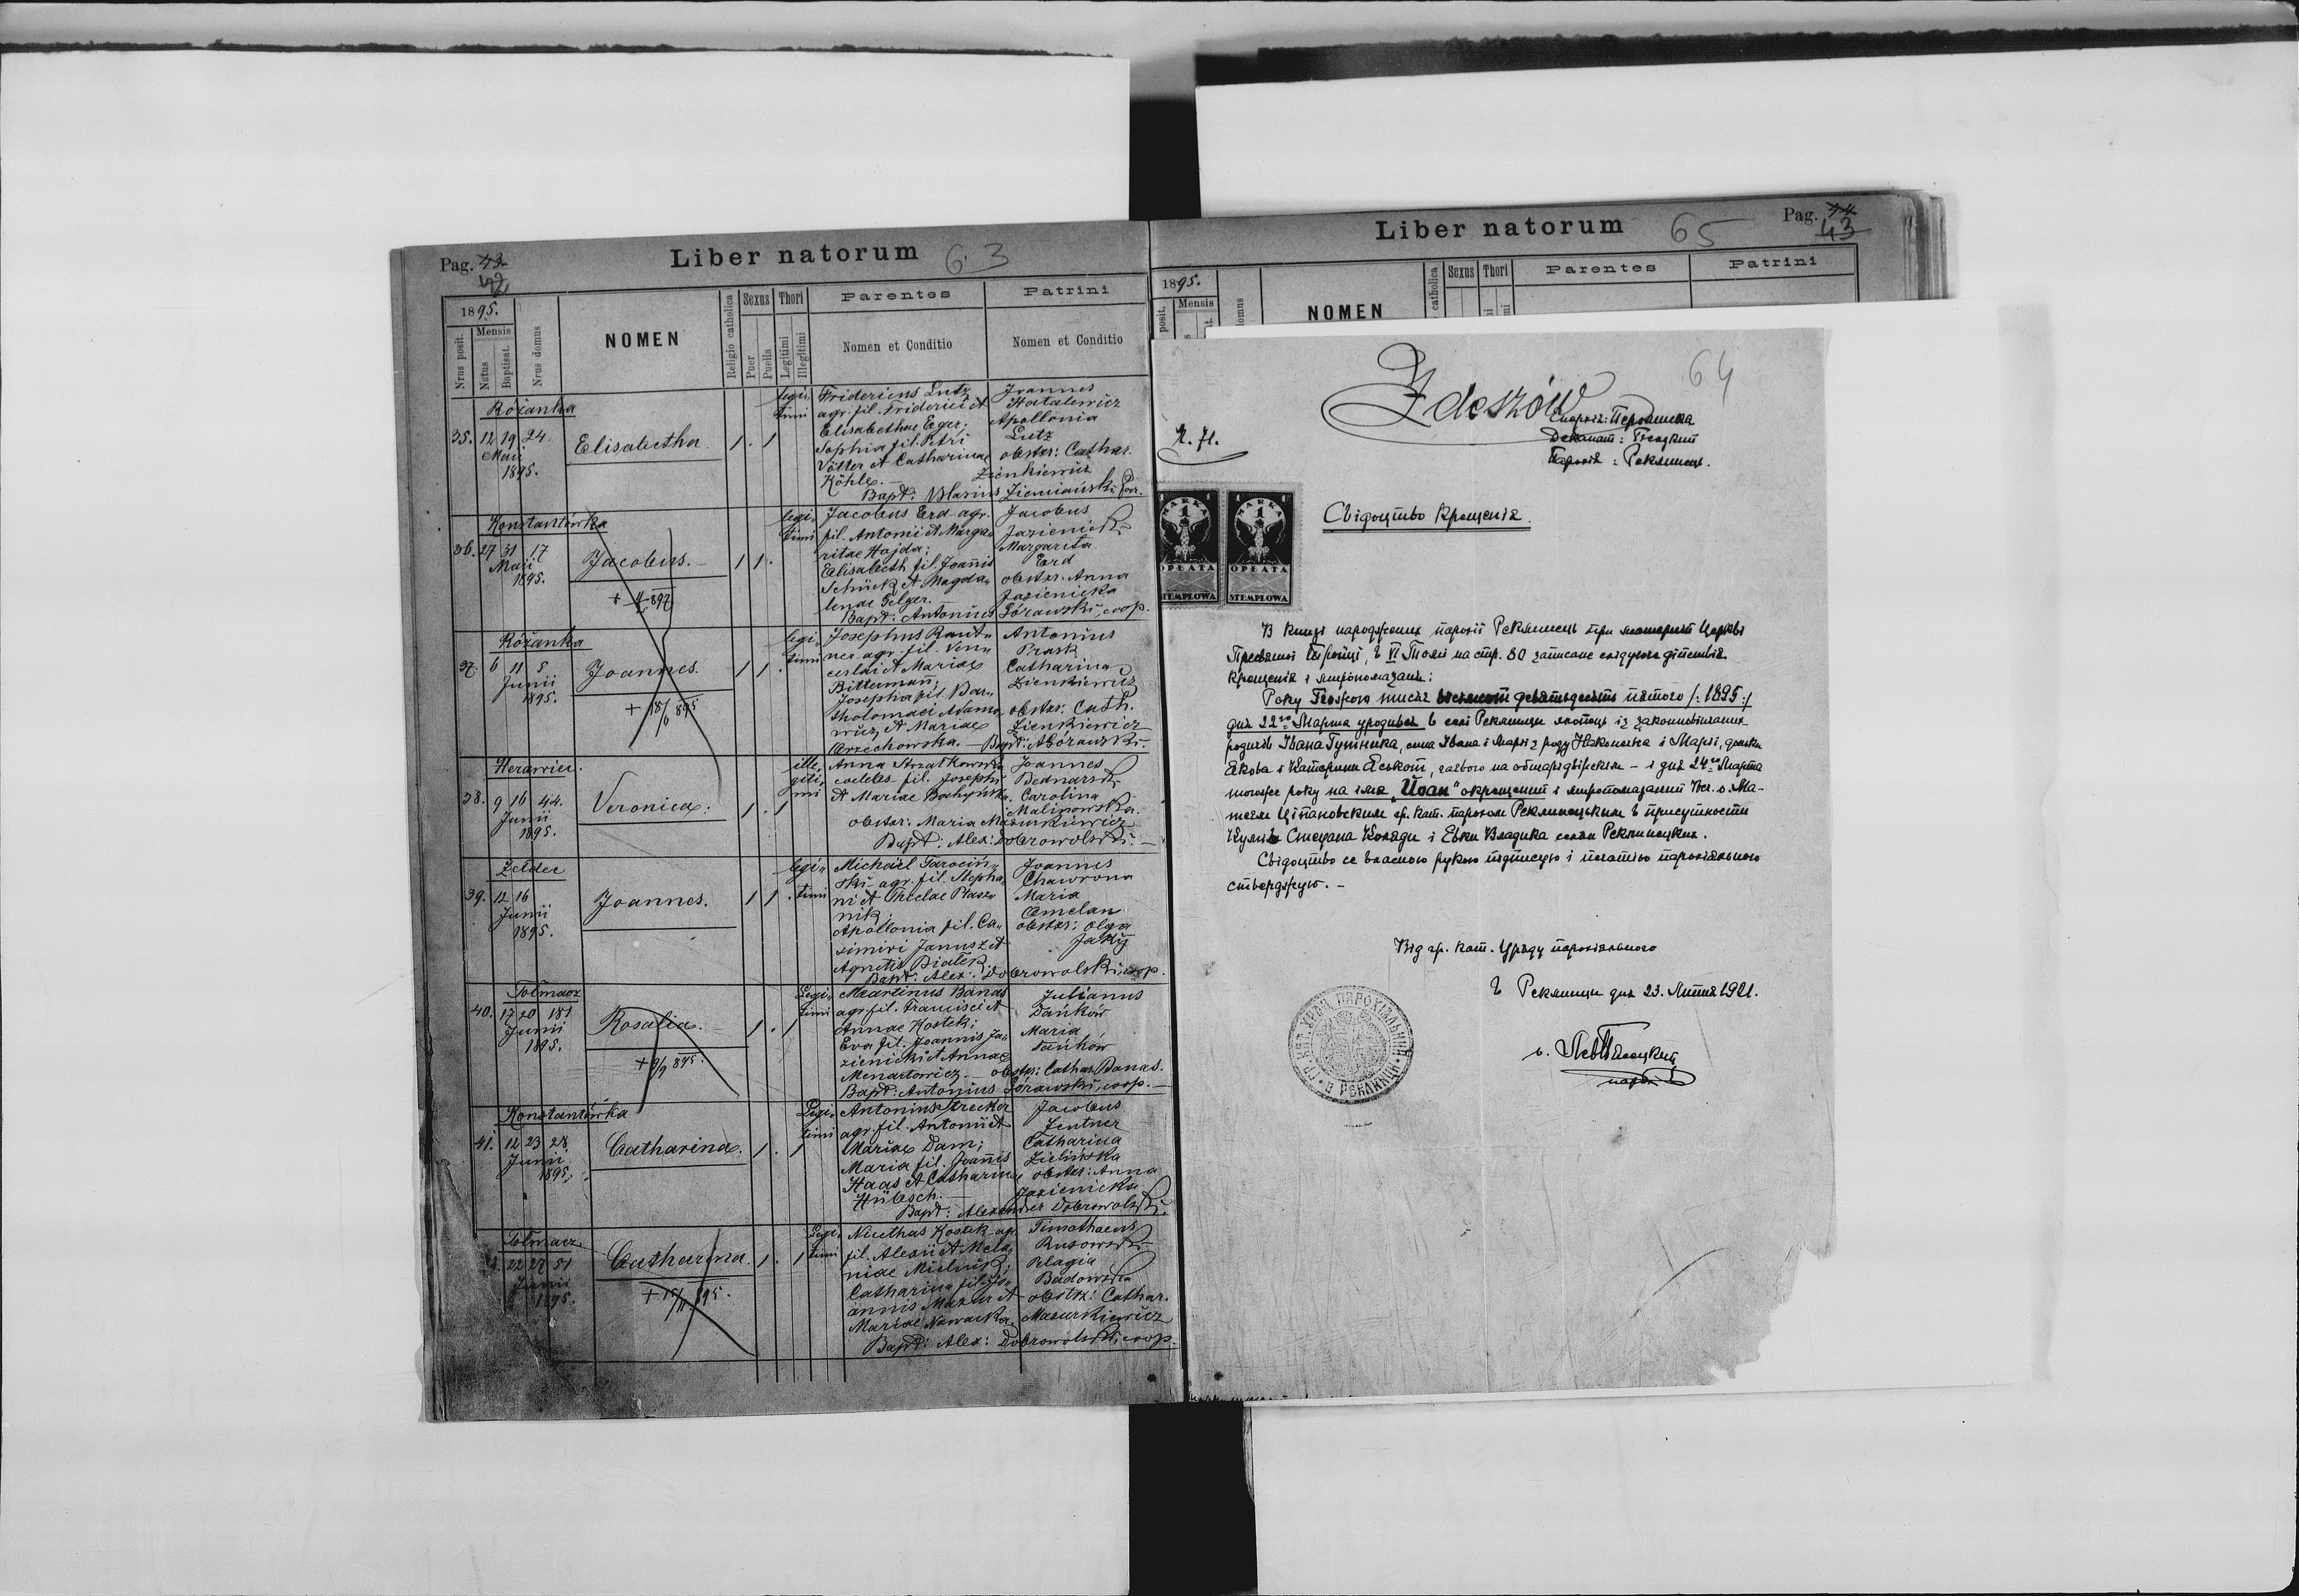 Pag. 43
42
Liber natorum 63
1895.
Nrus posit.
Mensis
Natus
Baptisat.
Nrus domus
NOMEN
Religio catholica
Sexus
Puer
Puella
Thori
Legitimi
Illegitimi
Parentes
Nomen et Conditio
Patrini
Nomen et Conditio
Różanka
35. 12 19 24
Maii
1895.
Elisabetha
1 . 1
legi-
timi
Fridericus Lutz
agr. fil. Friderici et
Elisabethae Eger;
Sophia fil. Petri
Vötter et Catharinae
Köhler. —
Joannes
Hatalewicz
Apollonia
Lutz
obstr: Cathar.
Zienkiewicz
Bapt: Blasius Ziemiański
Konstantówka
36. 27 31 17
Maii
1895.
Jacobus. —
1 1 .
legi-
timi
Jacobus Erd agr.
fil. Antonii et Marga-
ritae Hajda;
Elisabeth fil. Joannis
Schück et Magda-
lenae Gelger.
Jacobus
Jazienicki
Margarita
Erd
obstr. Anna
Jazienicka
Bapt: Antonius Górawski, coop.
Różanka
37. 6 11 5
Junii
1895.
Joannes.
+ 18/6 895
1 1 .
legi-
timi
Josephus Raut-
ner agr. fil. Ven-
ceslai et Mariae
Bittermann;
Josepha fil. Bar-
tholomaei Adamo-
wicz et Mariae
Orzechowska. —
Antonius
Prask
Catharina
Zienkiewicz
obstr: Cath.
Zienkiewicz
Bapt: A. Górawski.
38. 9 16 44.
Junii
1895.
Veronica.
1 . 1
ille-
giti-
mi
Anna
coelebs fil. Josephi
et Mariae Bochyńska.
Joannes
Bednarski
Carolina
Malinowska.
obstr: Maria Mazurkiewicz
Bapt: Alex: Dobrowolski. —
Zeldec
39. 12 16
Junii
1895.
Joannes.
1 1 .
legi-
timi
Michael Garociń-
ski agr. fil. Stepha-
ni et Theclae Ptasz-
nik;
Apollonia fil. Ca-
simiri Janusz et
Agnetis Białek.
Joannes
Chawrona
Maria
Omelan
obstr: Olga
Jakij
Bapt. Alex: Dobrowolski, coop.
Tołmacz
40. 17 20 181
Junii
1895.
Rosalia.
+ 9/9 895.
1 . 1
Legi-
timi
Martinus Banas
agr. fil. Francisci et
Annae Kostek;
Eva fil. Joannis Ja-
zienicki et Annae
Menartowicz. —
Julianus
Dańków
Maria
Dańków
obstr: Cathar. Banas.
Bapt: Antonius Górawski, coop. —
Konstantówka
41. 12 23 28
Junii
1895.
Catharina.
1 . 1
Legi-
timi
Antonius Strecker
agr. fil. Antonii et
Mariae Dam;
Maria fil. Joannis
Haas et Catharinae
Hübsch. —
Jacobus
Zentner
Catharina
Zielińska
obstr: Anna
Jazienicka
Bapt: Alexander Dobrowolski.
Tołmacz
22 27 51
Junii
1895.
Catharina.
1 . 1
Legi-
timi
Nicethas Kostek agr.
fil. Alexii et Mela-
niae Mielnik;
Catharina fil. Jo-
annis Mazur et
Mariae Nawacka.
Timothaeus
Rusowski
Pelagia
Badowska
obstr: Cathar.
Mazurkiewicz
Bapt: Alex: Dobrowolski, coop.
Liber natorum 65
Pag. 44
43
1895.
posit.
Mensis
domus
NOMEN
catholica
Sexus
Thori
Parentes
Patrini
64
Zdeszów
Епархія: Перемиска
Деканат:
Парохія: Реклинець.
Ч. 71.
MARKA
1
OPŁATA
STEMPLOWA
MARKA
1
OPŁATA
STEMPLOWA
Свідоцтво Крещенія.
В книзі народжених парохії Реклинець при матерній Церкві
Пресвятої Тройці, в VI Томі на стр. 80 записане слідуюче дійствія
крещенія і миропомазаня:
Року Божого тисяч девятьдесять пятого /: 1895 :/
дня 22го Марта уродився в селі Реклинци хлопець із законновінчаних
родичів Івана Гутника, сина Івана і Марії з роду Наконечна і Марії, доньки
Якова і Катерини Яськот, - і дня 24го Марта
тогоже року на імя „Йоан" окрещений і миропомазаний Вс. о. Ма-
теєм Ціпановским гр. кат. парохом Реклинецьким в присутности
Кумів Стефана Коляди і Евки Владика селян Реклинецких.
Свідоцтво се власною рукою підписую і печатію парохіяльною
стверджую. —
Від гр. кат. Уряду парохіяльного
в Реклинци дня 23. Липня 1921.
о. Лев
парох
ГР. КАТ. УРЯД ПАРОХІЯЛЬНИЙ В РЕКЛИНЦИ